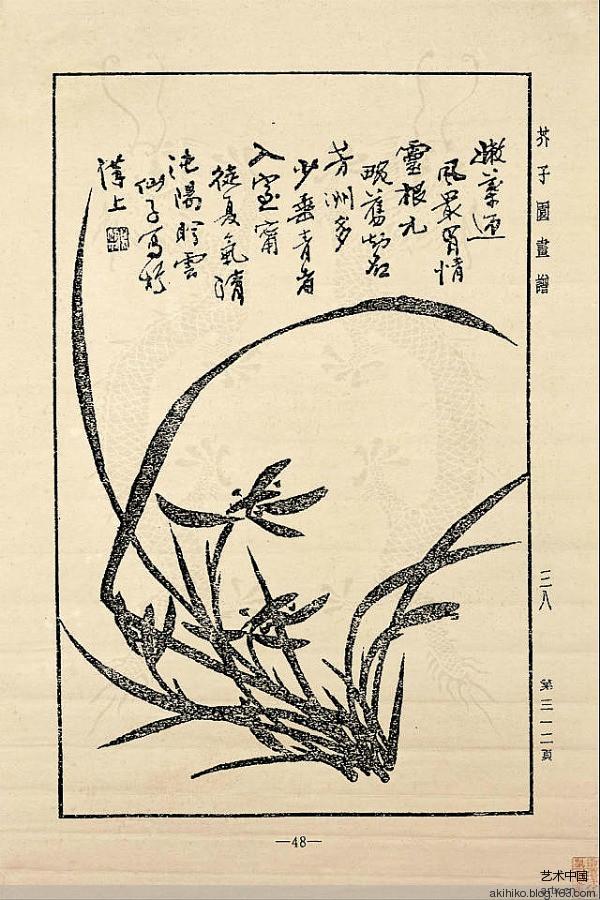 嫩葉迎
風最有情
靈根九
畹舊知名
芳洲多
少垂青者
入室甯
從氣清
陽雲
仙子寫於
漢上
芥子園畫譜
三八
第三一二頁
—48—
艺术中国
akihiko.blog.163.com